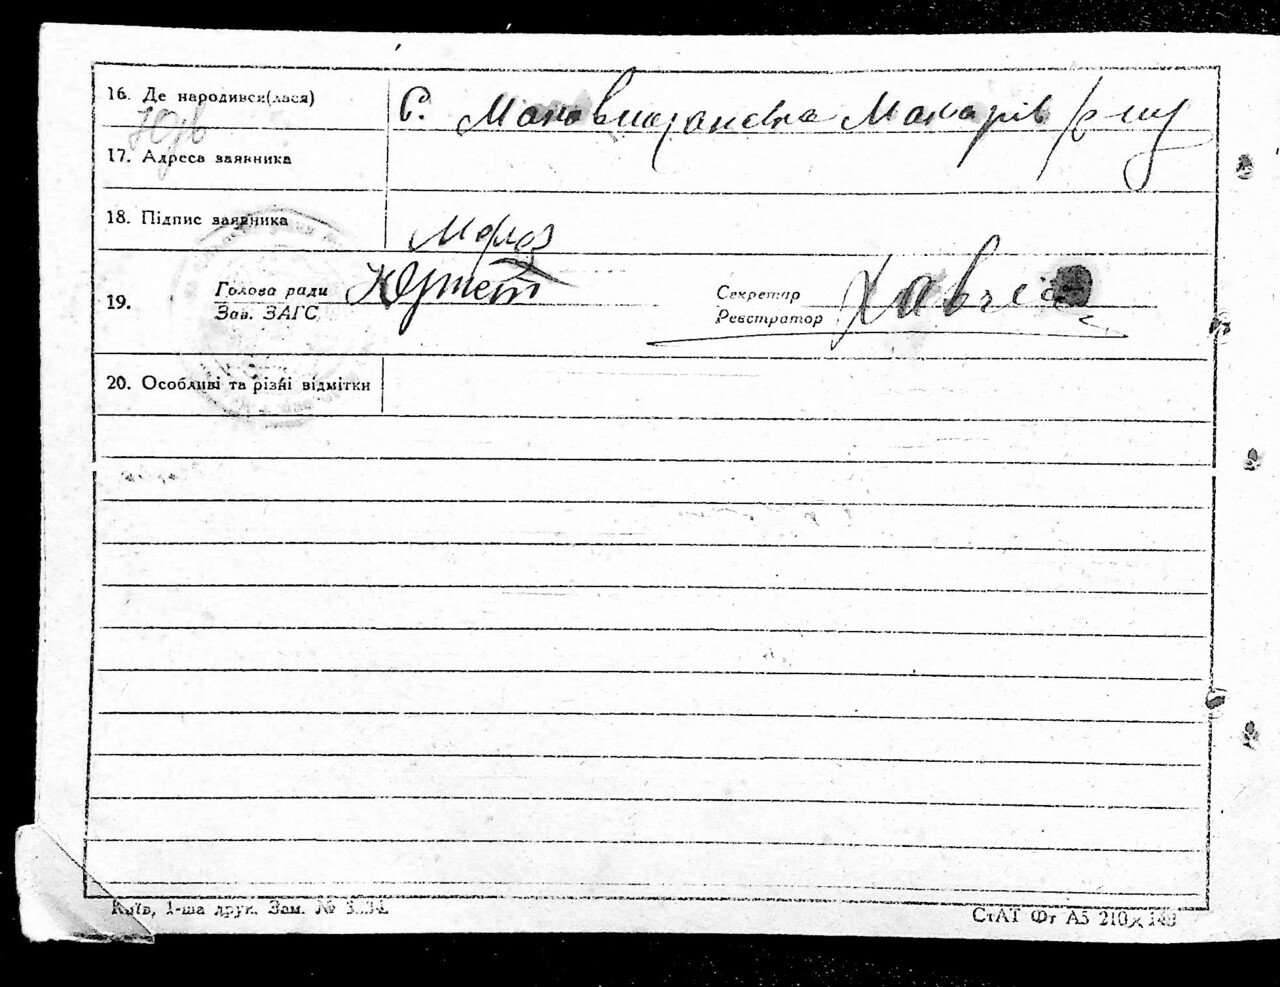 16. Де народився(лася) С. Маковищанська Макарів р-ну
17. Адреса заявника
18. Підпис заявника Мороз
19. Голова ради Секретар
Зав. ЗАГС Реєстратор
20. Особливі та різні відмітки
Київ, 1-ша друк. Зам. №
СтАТ Фт А5 210×148